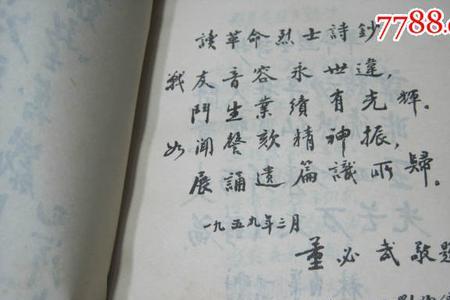 7788.c
讀革命烈士詩鈔
戰友音容永世違，
鬥生業績有光輝。
如聞謦欬精神振，
展誦遺篇識所歸。
一九五九年三月
董必武敬題